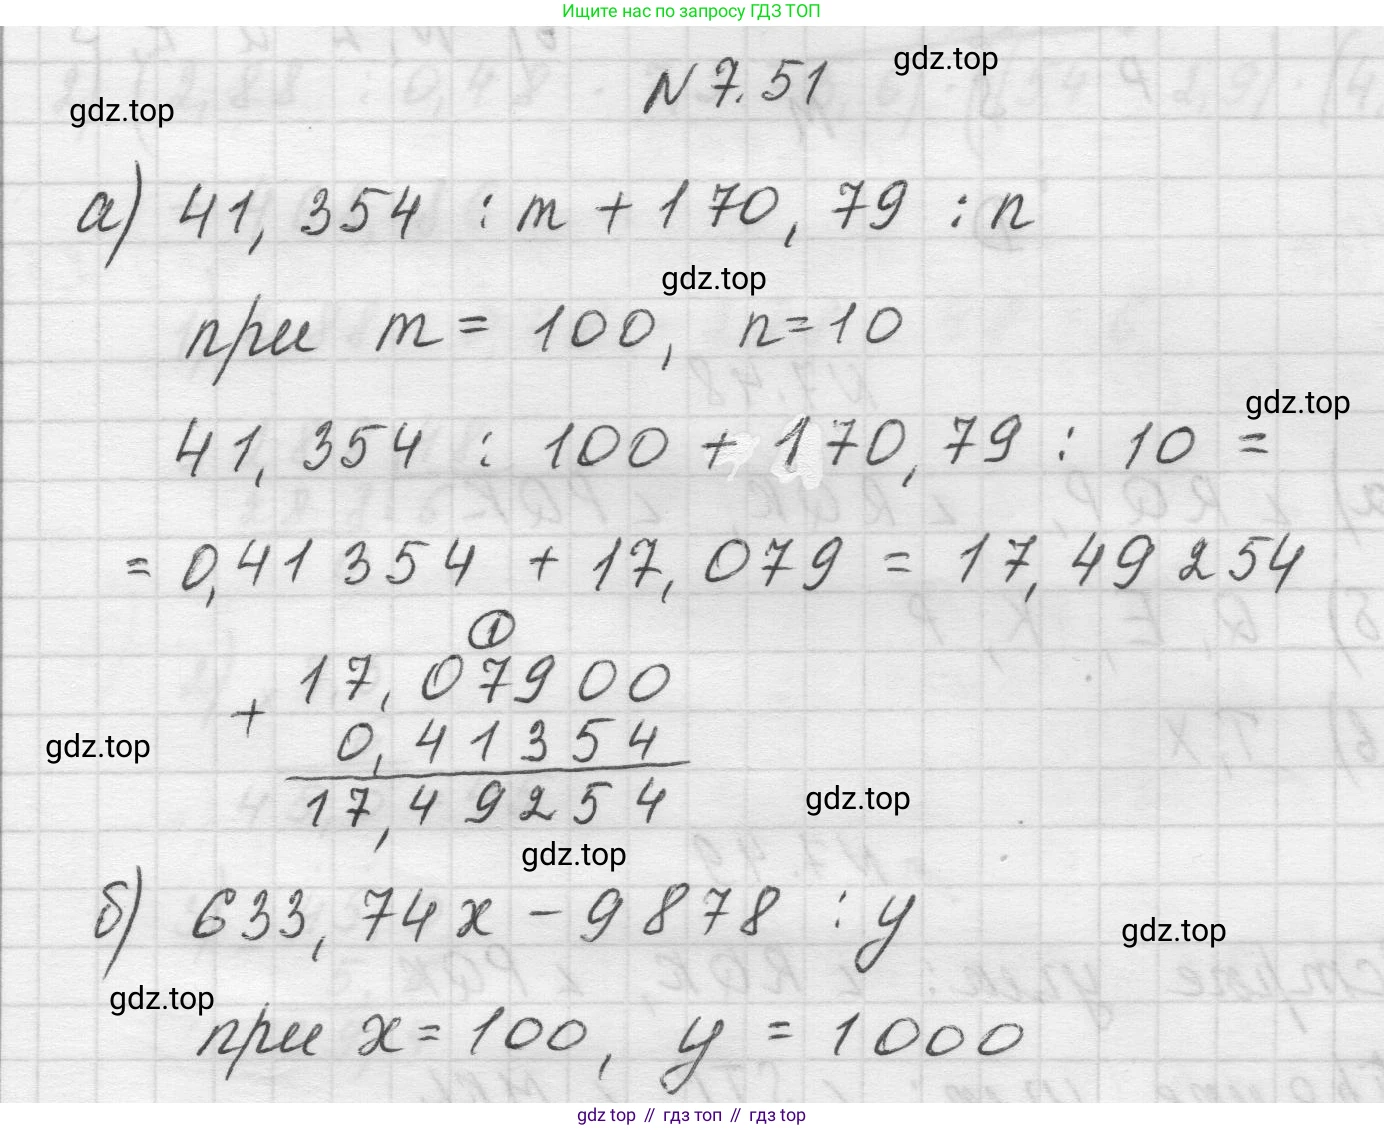 Ищите нас по запросу ГДЗ ТОП
N 7.51
gdz.top
gdz.top
а) 41,354 : m + 170,79 : n
gdz.top
при m = 100, n = 10
gdz.top
41,354 : 100 + 170,79 : 10 =
= 0,41354 + 17,079 = 17,49254
1
17,07900
+
0,41354
gdz.top
17,49254
gdz.top
gdz.top
б) 633,74x - 9878 : y
gdz.top
gdz.top
при x = 100, y = 1000
gdz top // гдз топ // gdz top